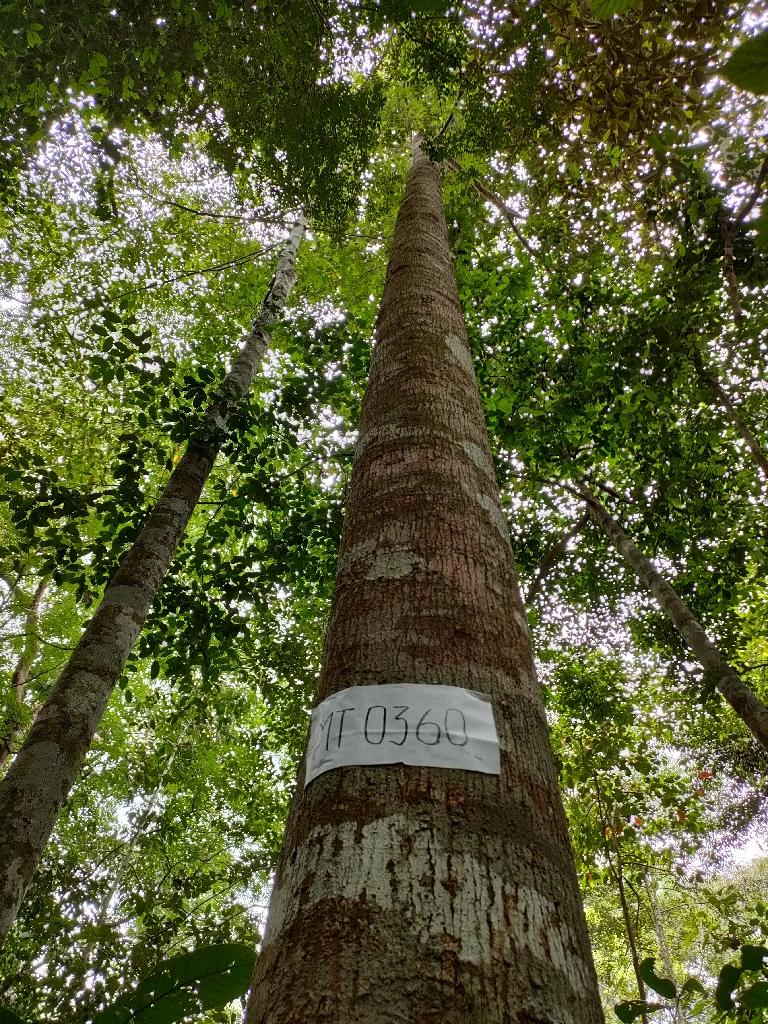 MT 0360